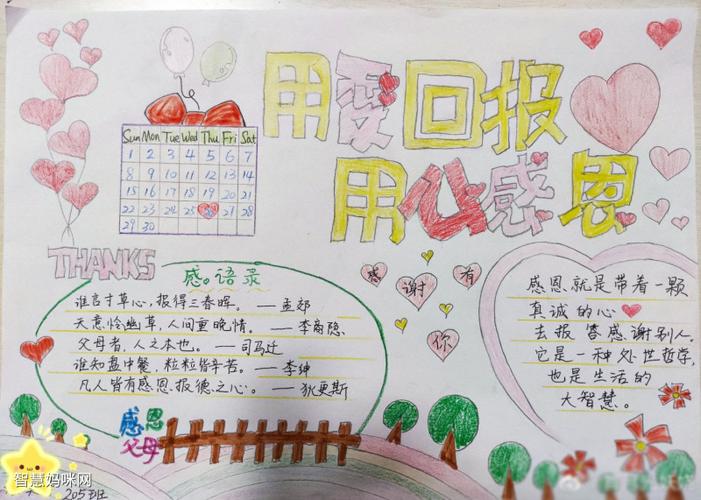 用爱回报
用心感恩
Sun Mon Tue Wed Thu Fri Sat
1 2 3 4 5 6 7
8 9 10 11 12 13 14
15 16 17 18 19 20 21
22 23 24 25 26 27 28
29 30
THANKS
感。语录
谁言寸草心,报得三春晖。—孟郊
天意怜幽草,人间重晚情。—李商隐
父母者,人之本也。—司马迁
谁知盘中餐,粒粒皆辛苦。—李绅
凡人皆有感恩报德之心。—狄更斯
感恩
父母
感谢有你
感恩就是带着一颗
真诚的心
去报答感谢别人。
它是一种处世哲学,
也是生活的
大智慧。
智慧妈咪网
205班